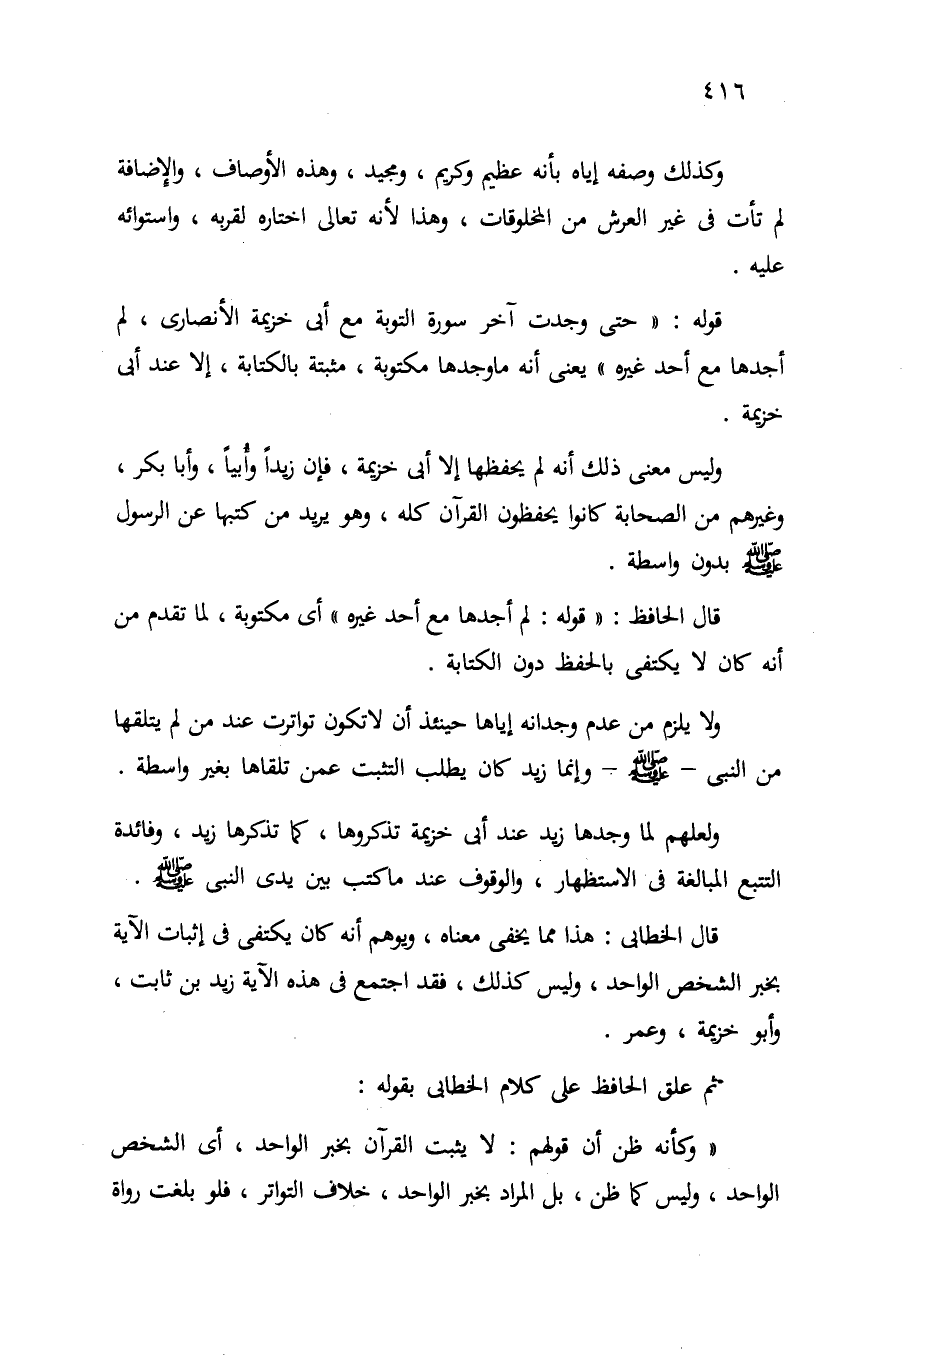 ٤١٦
وكذلك وصفه إياه بأنه عظيم وكريم ، ومجيد ، وهذه الأوصاف ، والإضافة
لم تأت فى غير العرش من المخلوقات ، وهذا لأنه تعالى اختاره لقربه ، واستوائه
عليه .
قوله : « حتى وجدت آخر سورة التوبة مع أبى خزيمة الأنصارى ، لم
أجدها مع أحد غيره » يعنى أنه ماوجدها مكتوبة ، مثبتة بالكتابة ، إلا عند أبى
خزيمة .
وليس معنى ذلك أنه لم يحفظها إلا أبى خزيمة ، فإن زيداً وأُبياً ، وأبا بكر ،
وغيرهم من الصحابة كانوا يحفظون القرآن كله ، وهو يريد من كتبها عن الرسول
ﷺ بدون واسطة .
قال الحافظ : « قوله : لم أجدها مع أحد غيره » أى مكتوبة ، لما تقدم من
أنه كان لا يكتفى بالحفظ دون الكتابة .
ولا يلزم من عدم وجدانه إياها حينئذ أن لاتكون تواترت عند من لم يتلقها
من النبى – ﷺ – وإنما زيد كان يطلب التثبت عمن تلقاها بغير واسطة .
ولعلهم لما وجدها زيد عند أبى خزيمة تذكروها ، كما تذكرها زيد ، وفائدة
التتبع المبالغة فى الاستظهار ، والوقوف عند ماكتب بين يدى النبى ﷺ .
قال الخطابى : هذا مما يخفى معناه ، ويوهم أنه كان يكتفى فى إثبات الآية
بخبر الشخص الواحد ، وليس كذلك ، فقد اجتمع فى هذه الآية زيد بن ثابت ،
وأبو خزيمة ، وعمر .
ثم علق الحافظ على كلام الخطابى بقوله :
« وكأنه ظن أن قولهم : لا يثبت القرآن بخبر الواحد ، أى الشخص
الواحد ، وليس كما ظن ، بل المراد بخبر الواحد ، خلاف التواتر ، فلو بلغت رواة